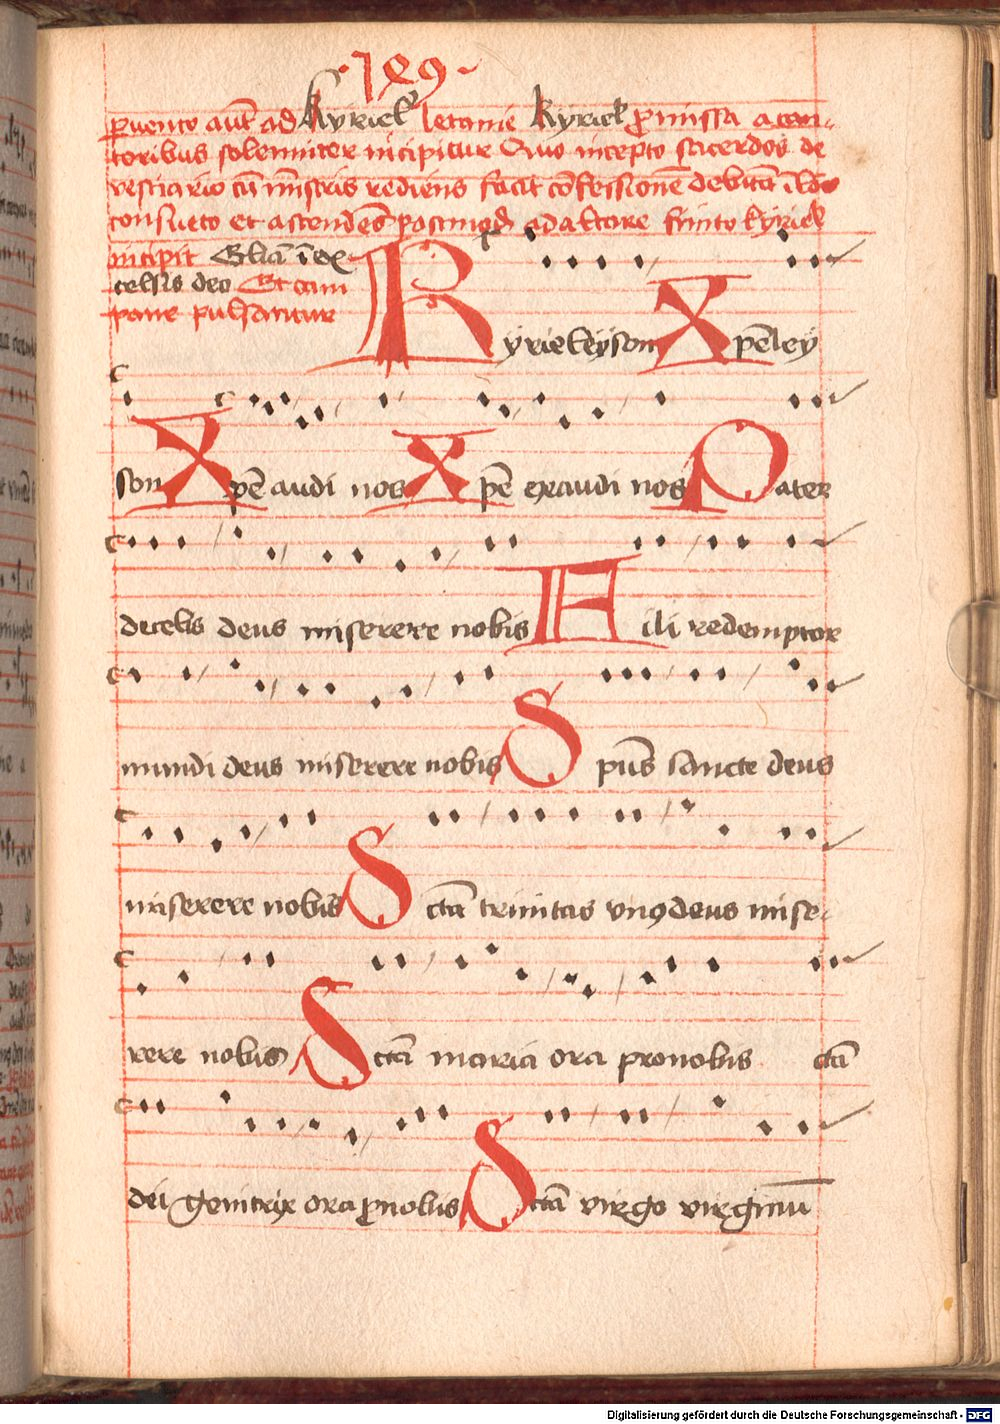 ·189·
puento aūt ad Kyriel' letanie Kyriel p̄ missa a can-
toribus solemniter incipitur Quo incepto sacerdos de
vestiario cū mīstris rediens facit cōfessionē debitā
consueto et ascendēs postmod ad altare finito kyriel
incipit Gl'ia ī ex
celsis deo Et cam
pane pulsantur
Kyrieleyson Xpēley
son Xpē audi nos Xpē exaudi nos Pater
de celis deus miserere nobis Fili redemptor
mundi deus miserere nobis Spūs sancte deus
miserere nobis Sctā trinitas vnꝯ deus mise-
rere nobis Sctā maria ora pro nobis ctā
dei genitrix ora p nobis Sctā virgo virginū
Digitalisierung gefördert durch die Deutsche Forschungsgemeinschaft - DFG